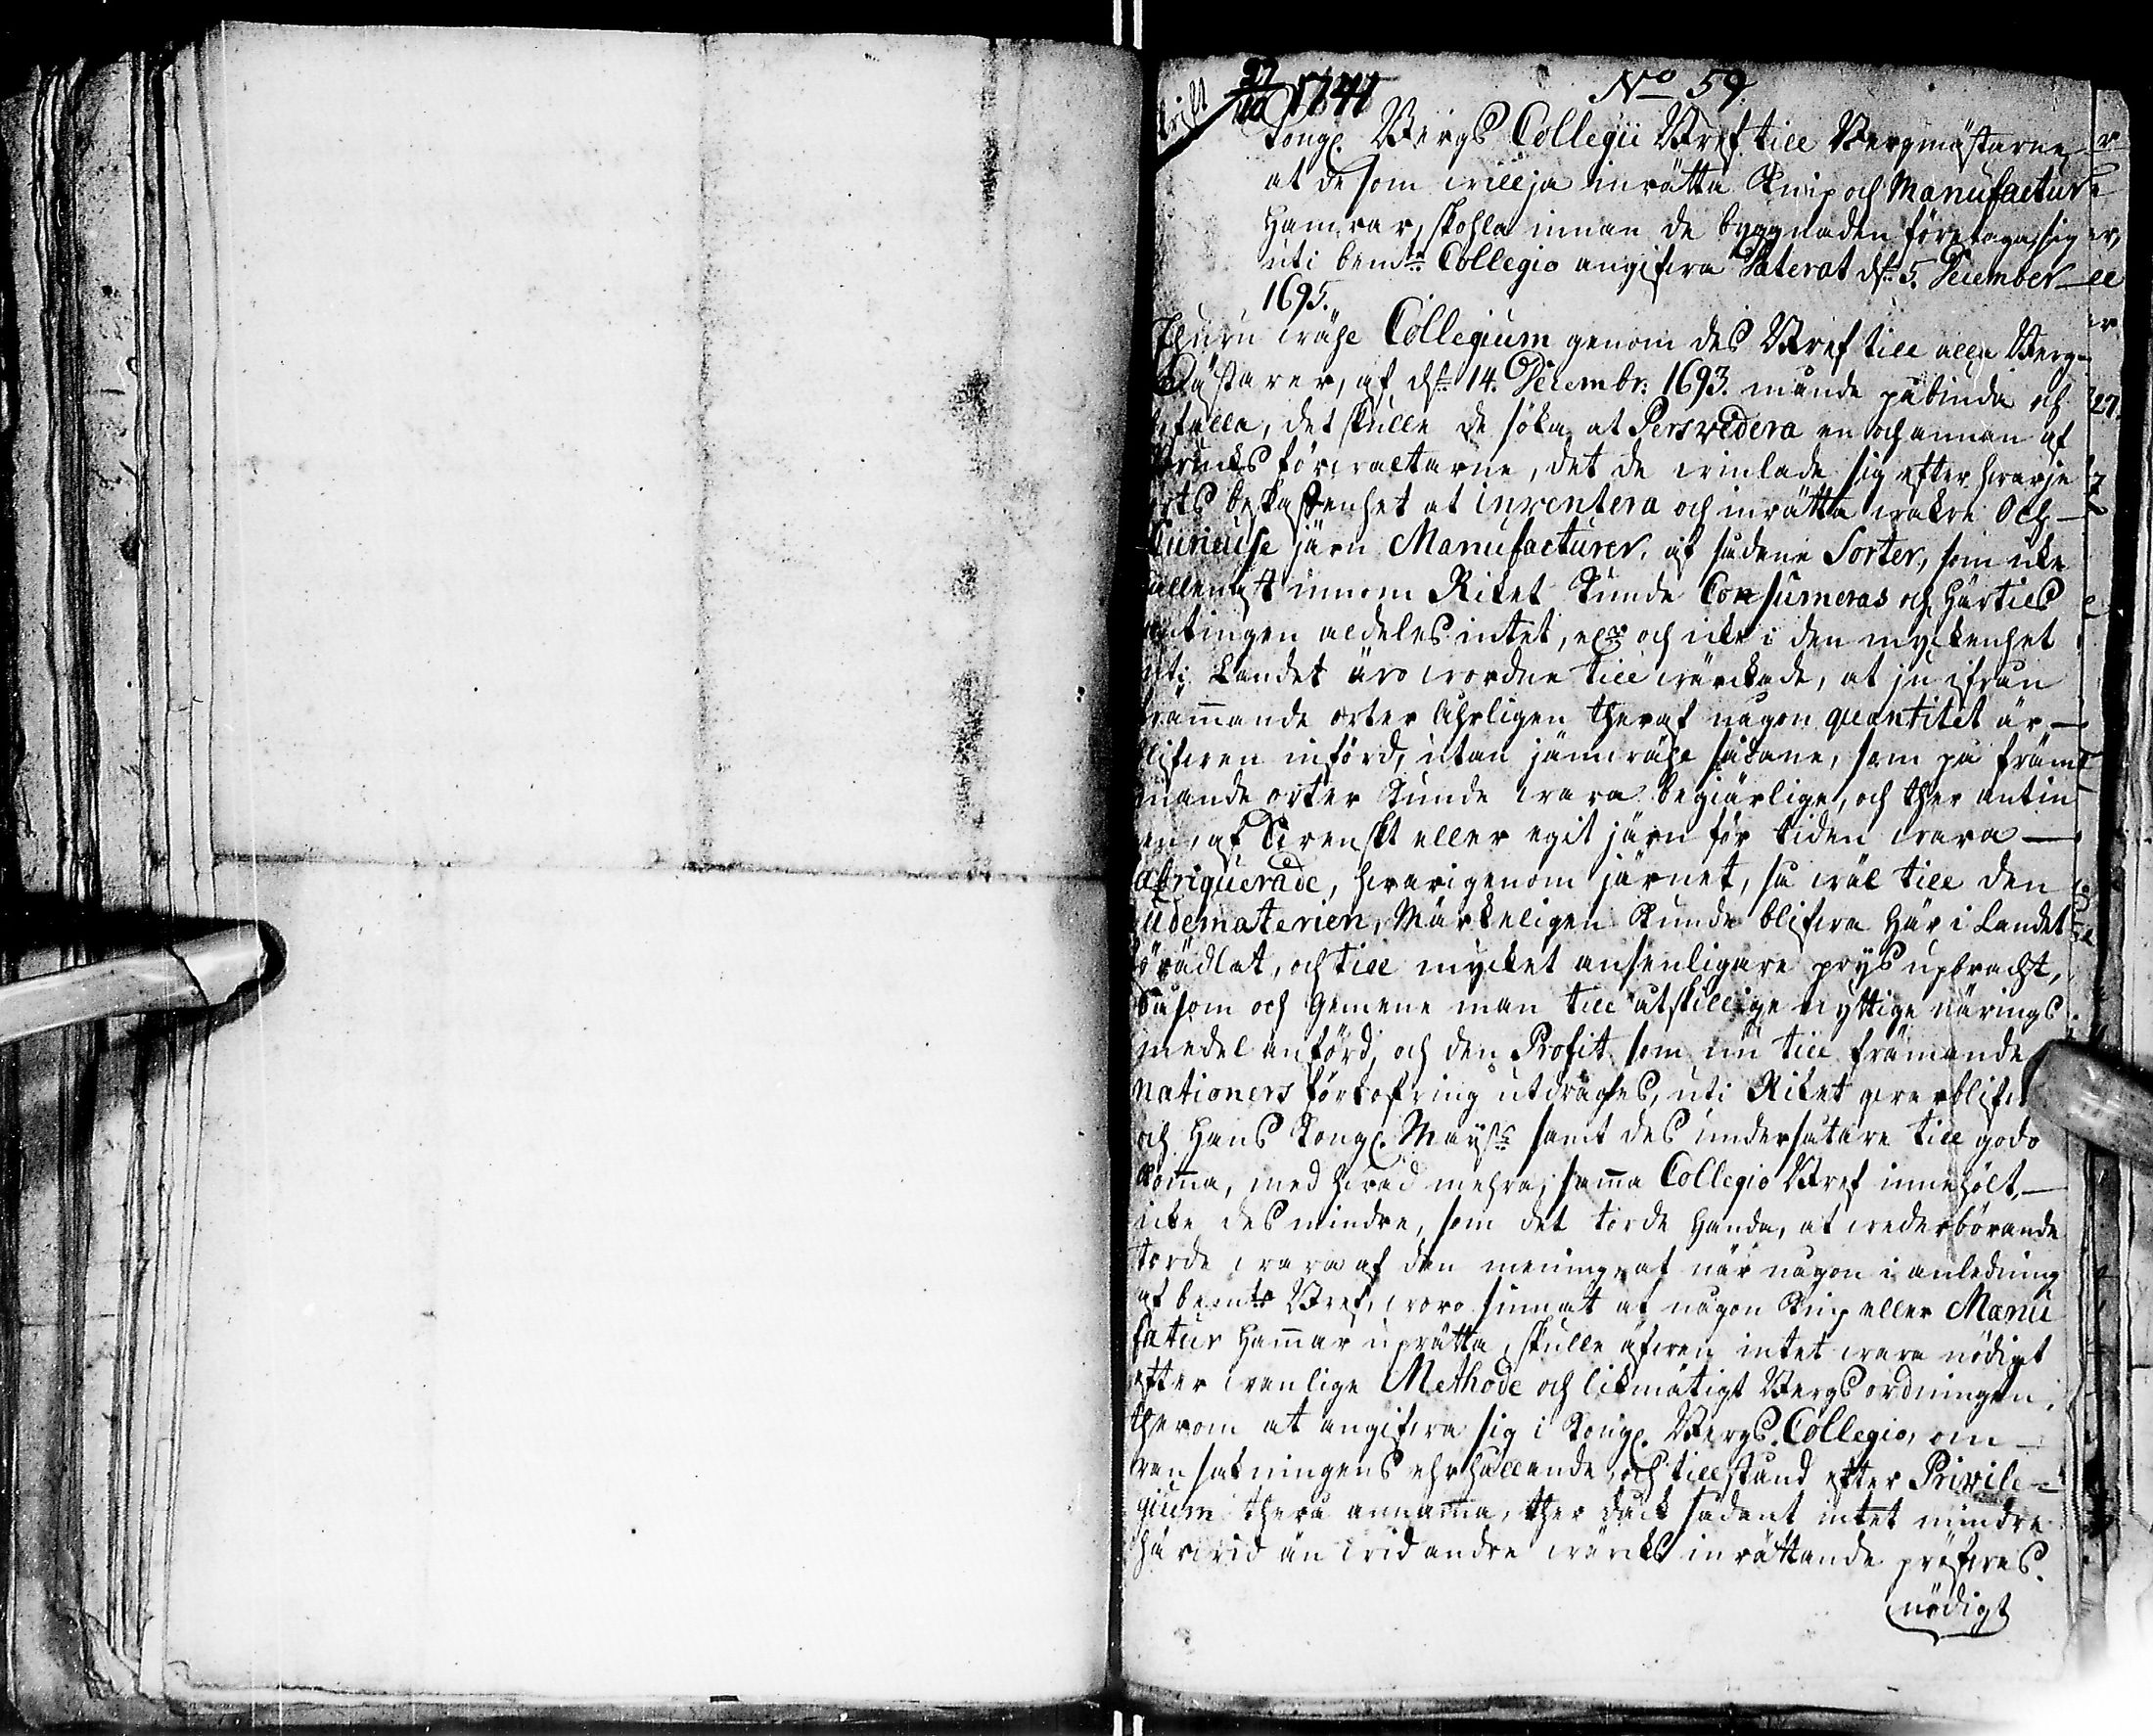 27/10 1747
No 59.
Kongl. Bergs Collegii Bref till Bergmästarne
at de som willja inrätta Knip och Manufactur
Hamrar, skohla innan de byggnaden företaga, sig
uti bemte Collegio angifwa Daterat dn 5. December
1695.
Ehuru wähl Collegium genom des Bref till alla Berg-
Mästarer, af dn 14. Decembr: 1693. månde påbinda och
befalla, det skulle de söka at Persvedera en och annan af
Bruks förwaltarne, det de winlade sig efter hwarje
orts beskaffenhet at inventera och inrätta wakra Och
Curieuse järn Manufacturer, af sådane Sorter, som icke
allenast innom Riket kunde Consumeras och härtils
antingen aldeles intet, elr och icke i den myckenhet
uti Landet äro wordne till wärckade, at ju ifrån
främmande orter åhrligen theraf någon quantitet är
blifwen införd, utan jämwähl sådane, som på främ
mande orter kunde wara begiärlige, och ther antin
en, af Swenskt eller egit järn för tiden wara
fabriquerade, hwarigenom järnet, så wäl till den
ädematerien, Märkeligen kunde blifwa här i Landet
förädlat, och till mycket ansenligare prijs upbracht,
Såsom och Gemene man till åtskillige nyttige närings
medel anförd, och den Profit som nu till främande
Nationers förkofring utdrages, uti Riket qwarblifwa
och Hans Kongl. Mayts samt des undersåtare till godo
komma, med hwad mehra, samma Collegio Bref innehölt,
icke des mindre, som det torde handa, at wederbörande
torde wara af den mening, at när någon i anledning
af bemte Bref, woro sinnat at någon Knip eller Manu
factur Hammar uprätta, skulle äfwen intet wara nödigt
efter wanlige Methode och likmätigt Bergsordningen,
therom at angifwa sig i Kongl. Bergs. Collegio, om
ransakningens ehrhållande, och tillstånd efter Privile-
gium therå annamma, ther dock sådant intet mindre
härwid än wid andre wärcks inrättande pröfwes.
nödigt